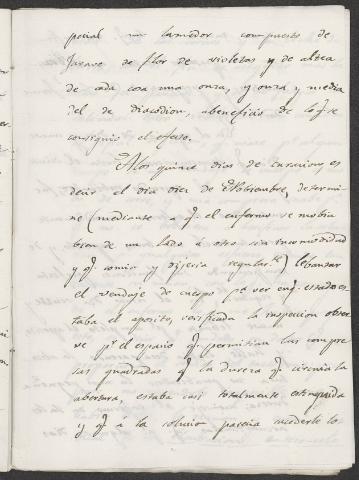 pecial un lamedor compuesto de
Jarave de flor de violetas y de altea
de cada cosa una onza, y onza y media
del de diacodion, a beneficio de lo q.e se
consiguió el efecto.
A los quince dias de curacion, es
decir el dia diez de Nobiembre, determi-
ne (mediante a q.e el enfermo se mobia
bien de un lado á otro sin incomodidad
y q.e comia y dijeria regularm.te) lebantar
el vendaje de cuerpo p.a ver en q.e estado es
taba el aposito, verificada la inspeccion obser
ve p.r el espacio q.e permitian las compre
sas quadradas q.e la dureza q.e circuia la
abertura, estaba casi totalmente extinguida
y q.e á la solucio parecia sucederle lo